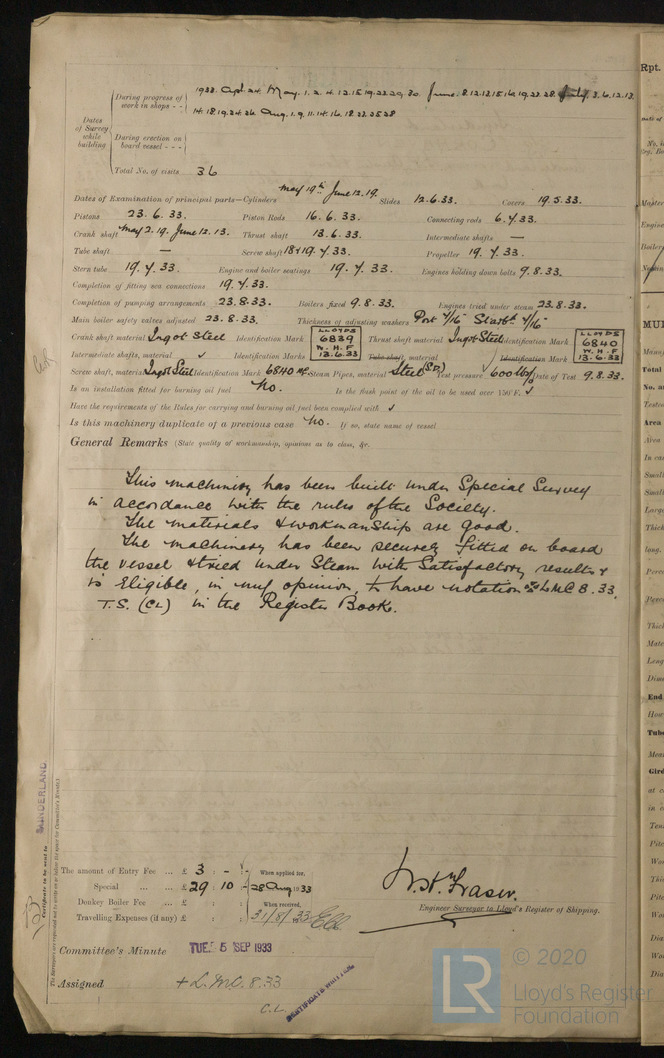 Dates of Survey while building
During progress of work in shops - - 1933. Apl. 24. May. 1. 2. 4. 12. 15. 19. 22. 29. 30. June. 8. 12. 13. 15. 16. 19. 22. 28. July. 3. 6. 12. 13.
14. 18. 19. 24. 26. Aug. 1. 9. 11. 14. 16. 18. 22. 25. 28
During erection on board vessel - - -
Total No. of visits 36
Dates of Examination of principal parts—Cylinders May 19th June 12. 19. Slides 12.6.33. Covers 19.5.33.
Pistons 23.6.33. Piston Rods 16.6.33. Connecting rods 6.7.33.
Crank shaft May 2. 19. June 12. 13. Thrust shaft 13.6.33. Intermediate shafts —
Tube shaft — Screw shaft 18 & 19.7.33. Propeller 19.7.33.
Stern tube 19.7.33. Engine and boiler seatings 19.7.33. Engines holding down bolts 9.8.33.
Completion of fitting sea connections 19.7.33.
Completion of pumping arrangements 23.8.33. Boilers fixed 9.8.33. Engines tried under steam 23.8.33.
Main boiler safety valves adjusted 23.8.33. Thickness of adjusting washers Port 7/16" Starbd 7/16"
Crank shaft material Ingot Steel Identification Mark LLOYDS 6839 W.H.F 13.6.33 Thrust shaft material Ingot Steel Identification Mark LLOYDS 6840 W.H.F 13.6.33
Intermediate shafts, material ✓ Identification Marks Tube shaft, material ✓ Identification Mark
Screw shaft, material Ingot Steel Identification Mark 6840 Steam Pipes, material Steel (SD) Test pressure 600 lbs Date of Test 9.8.33.
Is an installation fitted for burning oil fuel No. Is the flash point of the oil to be used over 150°F. ✓
Have the requirements of the Rules for carrying and burning oil fuel been complied with ✓
Is this machinery duplicate of a previous case No. If so, state name of vessel
General Remarks (State quality of workmanship, opinions as to class, &c.
This machinery has been built under Special Survey
in accordance with the rules of the Society.
The materials & workmanship are good.
The machinery has been securely fitted on board
the vessel & tried under Steam with Satisfactory results &
is Eligible, in my opinion, to have notation + LMC 8.33.
T.S. (CL) in the Register Book.
SUNDERLAND
Certificate to be sent to
The amount of Entry Fee ... £ 3 : - : When applied for,
Special ... ... £ 29 : 10 : 28 Aug 1933
Donkey Boiler Fee ... £ : : When received,
Travelling Expenses (if any) £ : : 31/8/33
W.H. Fraser.
Engineer Surveyor to Lloyd's Register of Shipping.
Committee's Minute TUE. 5 SEP 1933
Assigned + L.M.C. 8.33
C.L.
CERTIFICATE WRITTEN
© 2020
LR
Lloyd's Register
Foundation
Rpt.